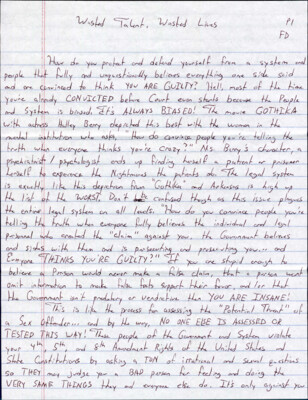 Wasted Talent, Wasted Lives
P1
FD
How do you protect and defend yourself from a system and
people that fully and unquestionably believes everything one side said
and are convinced to think YOU ARE GUILTY? Hell, most of the time
you're already CONVICTED before Court even starts because the People
and System is biased. IT'S ALWAYS BIASED! The movie GOTHIKA
with actress Halley Berry depicted this best with the woman in the
mental institution who said, "How do convince people you're telling the
truth when everyone thinks you're crazy?" Ms. Berry's character, a
psychiatrist/psychologist ends up finding herself a patient or prisoner
herself to experience the Nightmares the patients do. The legal system
is exactly like this depiction from "Gothika" and Arkansas is high up
the list of the WORST. Don't be confused though as this issue plagues
the entire legal system on all levels. "How do you convince people you're
telling the truth when everyone fully believes the individual and other
personnel who created the "claim" against you, the Government believes
and sides with them and is persecuting and prosecuting you... and
Everyone THINKS YOU'RE GUILTY?" If you are stupid enough to
believe a Person would never make a false claim, that a person won't
omit information to make false facts support their favor, and/or that
the Government isn't predatory or vendictive then YOU ARE INSANE!
This is like the process for assessing the "Potential Threat" of
a Sex Offender... and by the way, NO ONE ELSE IS ASSESSED OR
TESTED THIS WAY! These people of the Government and System violate
your 4th, 5th, and 8th Amendment Rights of the United States and
State Constitutions by asking a TON of irrational and sexual questions
so THEY may judge you a BAD person for feeling and doing the
VERY SAME THINGS they and everyone else do. It's only against you